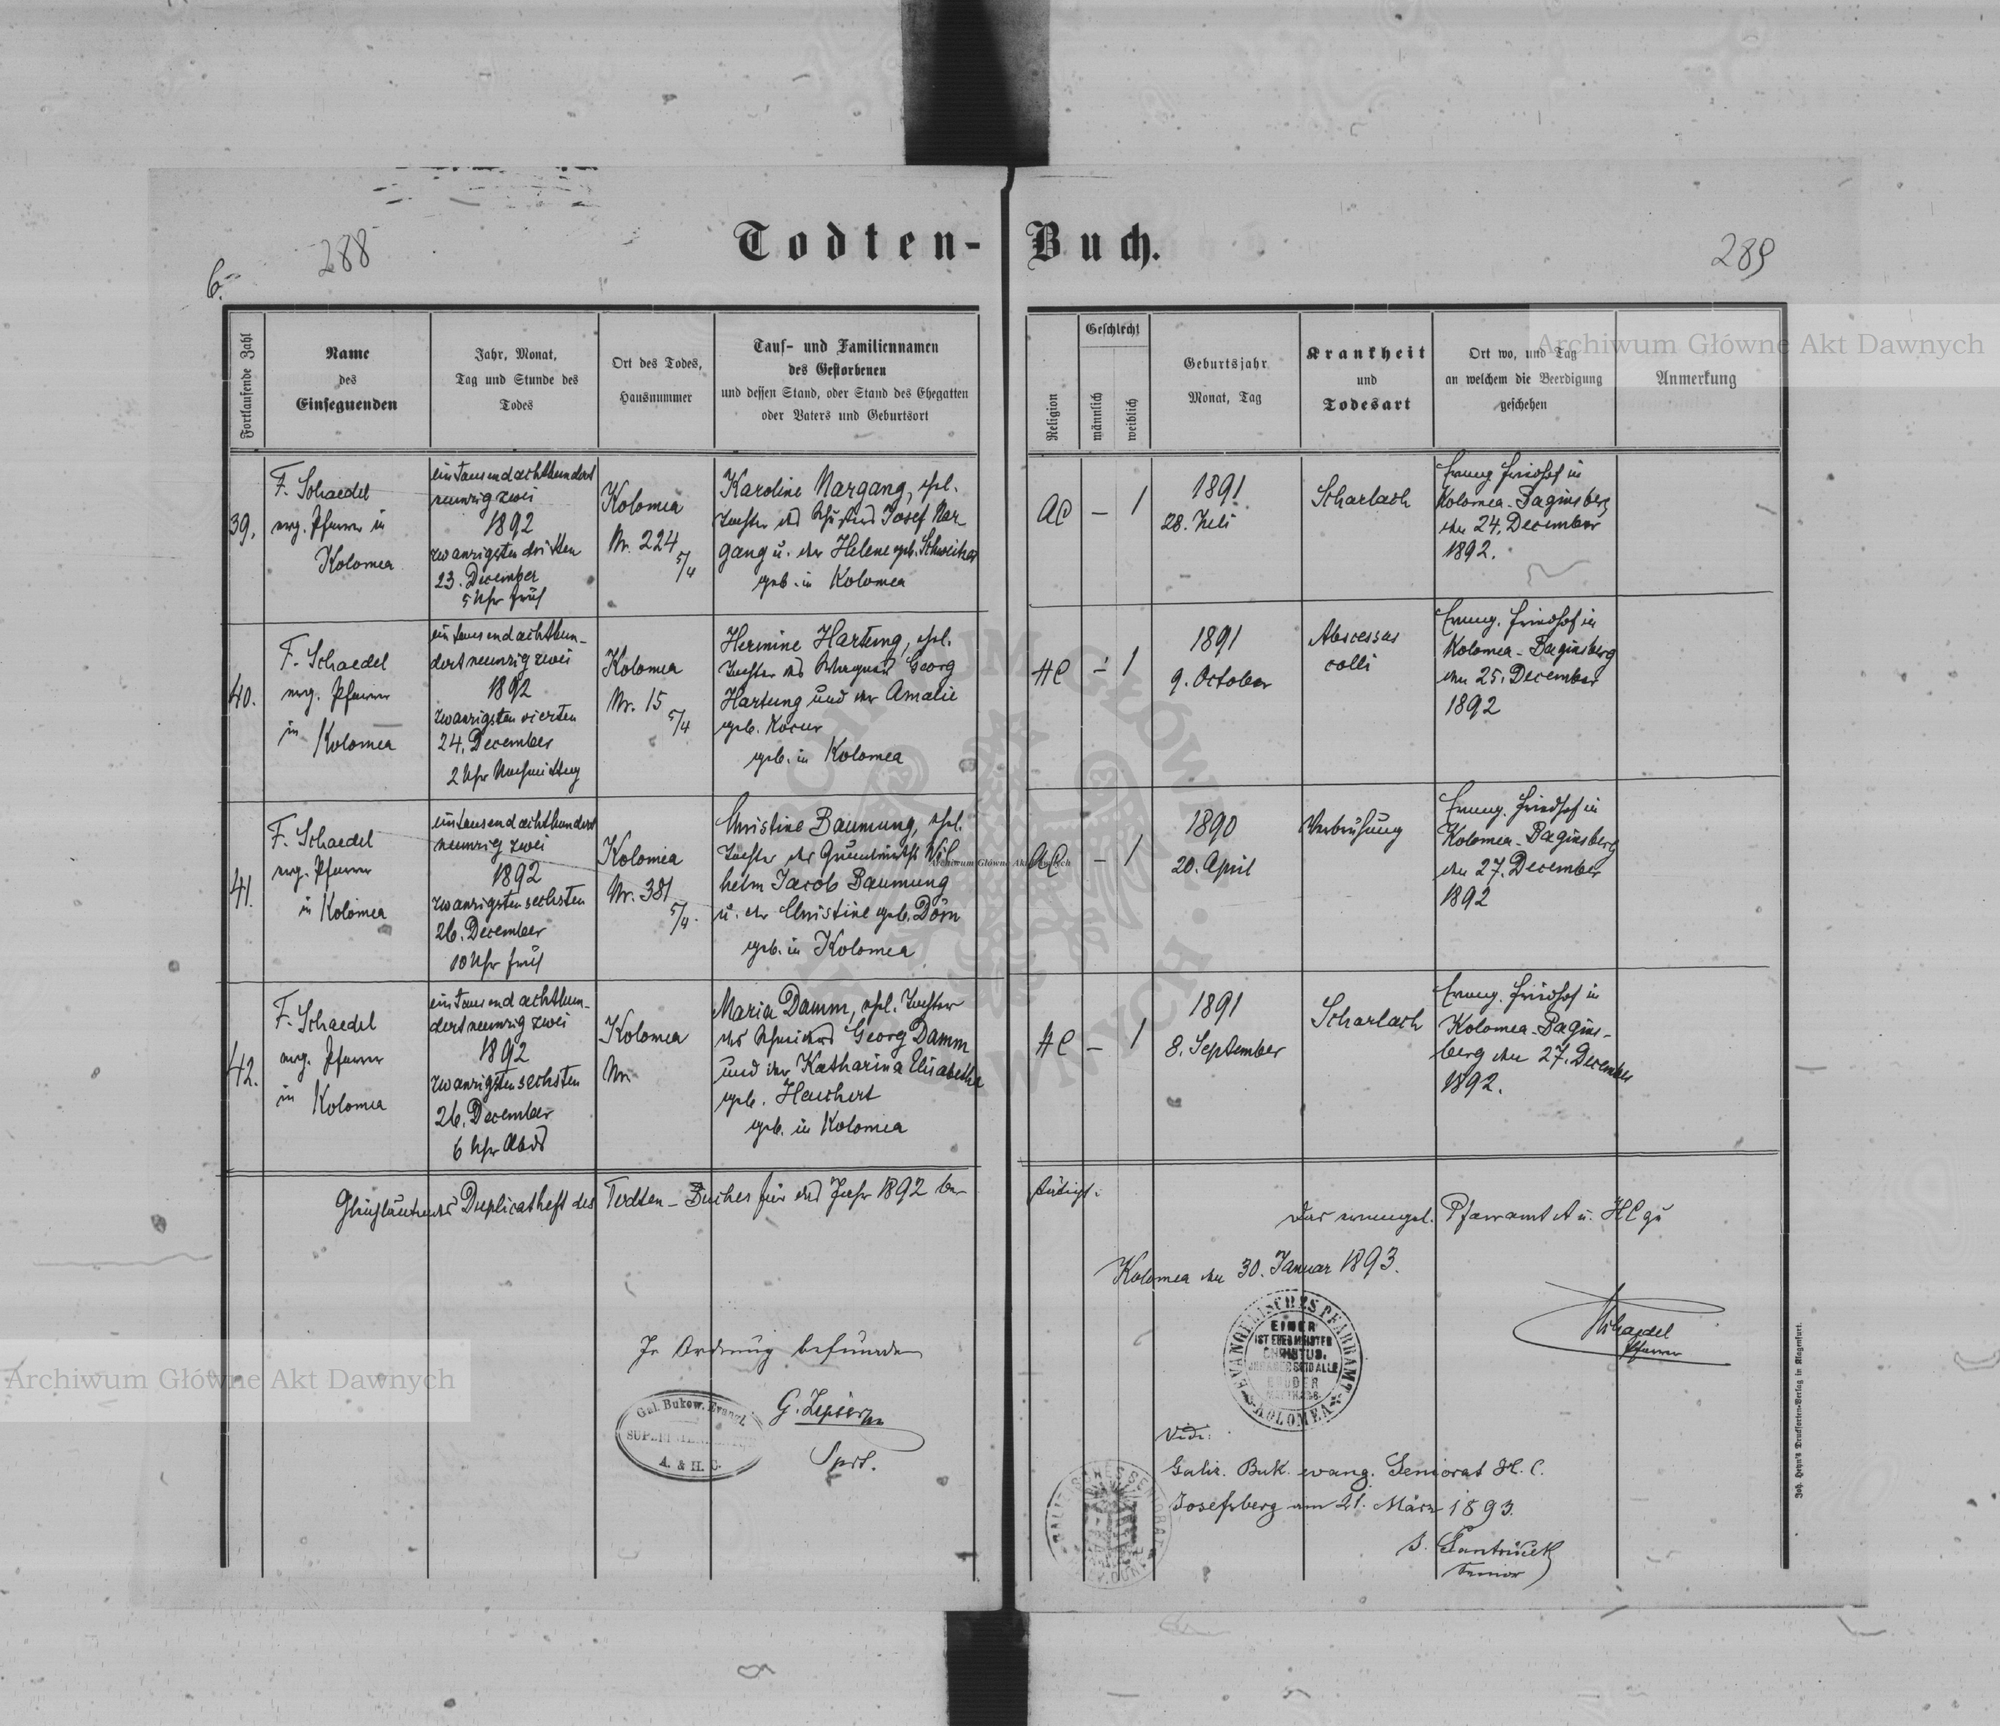 Todten- Buch.
6.
288
289
Fortlaufende Zahl
Name
des
Einsegnenden
Jahr, Monat,
Tag und Stunde des
Todes
Ort des Todes,
Hausnummer
Tauf- und Familiennamen
des Gestorbenen
und dessen Stand, oder Stand des Ehegatten
oder Vaters und Geburtsort
Religion
Geschlecht
männlich
weiblich
Geburtsjahr
Monat, Tag
Krankheit
und
Todesart
Ort wo, und Tag
an welchem die Beerdigung
geschehen
Anmerkung
39.
F. Schaedel
evg. Pfarrer in
Kolomea
eintausendachthundert
neunzig zwei
1892
zwanzigsten dritten
23. December
5 Uhr früh
Kolomea
Nr. 224
5/4
Karoline Nargang, ehel.
Tochter des Josef Nar-
gang u. der Helene geb. Schweitzer
geb. in Kolomea
AC
–
1
1891
28. Juli
Scharlach
Evang. Friedhof in
Kolomea-Baginsberg
den 24. December
1892.
40.
F. Schaedel
evg. Pfarrer
in Kolomea
eintausendachthun-
dertneunzig zwei
1892
zwanzigsten vierten
24. December
2 Uhr Nachmittag
Kolomea
Nr. 15
5/4
Hermine Hartung, ehel.
Tochter des Wagners Georg
Hartung und der Amalie
geb. Kocur
geb. in Kolomea
HC
–
1
1891
9. October
Abscessus
colli
Evang. Friedhof in
Kolomea-Baginsberg
den 25. December
1892
41.
F. Schaedel
evg. Pfarrer
in Kolomea
eintausendachthundert
neunzig zwei
1892
zwanzigsten sechsten
26. December
10 Uhr früh
Kolomea
Nr. 381
5/4.
Christine Baumung, ehel.
Tochter des Grundwirths Wil-
helm Jacob Baumung
u. der Christine geb. Dörn
geb. in Kolomea
AC
–
1
1890
20. April
Verbrühung
Evang. Friedhof in
Kolomea-Baginsberg
den 27. December
1892
42.
F. Schaedel
evg. Pfarrer
in Kolomea
eintausendachthun-
dertneunzig zwei
1892
zwanzigsten sechsten
26. December
6 Uhr Abds
Kolomea
Nr.
Maria Damm, ehel. Tochter
des Schneiders Georg Damm
und der Katharina Elisabetha
geb. Heuchert
geb. in Kolomea
HC
–
1
1891
8. September
Scharlach
Evang. Friedhof in
Kolomea-Bagins-
berg den 27. December
1892.
Gleichlautendes Duplicatheft des Todten-Buches für das Jahr 1892 be-
stätigt.
Das evangel. Pfarramt A u. HC zu
Kolomea den 30. Januar 1893.
Schaedel
Pfarrer
EVANGELISCHES PFARRAMT
KOLOMEA
EINER
IST EUER MEISTER
CHRISTUS,
IHR ABER SEID ALLE
BRÜDER
In Ordnung befunden
Gal. Bukow. Evangl.
A. & H. C.
Sprt.
Vidi:
Galiz. Buk. evang. Seniorat H. C.
Josefsberg am 21. März 1893.
Senior
Joh. Heyn's Drucksorten-Verlag in Klagenfurt.
Archiwum Główne Akt Dawnych
Archiwum Główne Akt Dawnych
Archiwum Główne Akt Dawnych